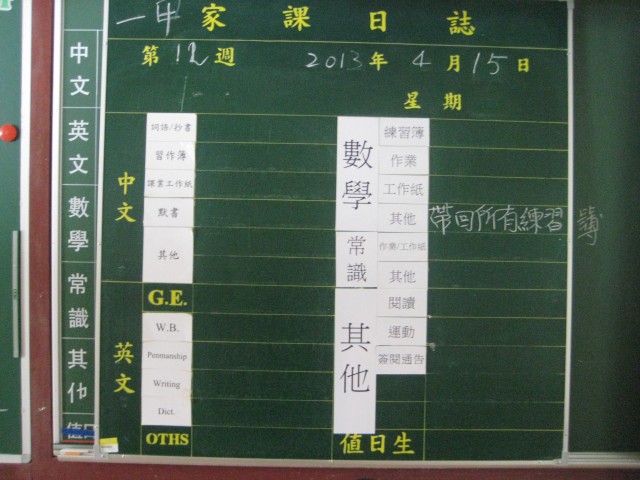 一甲 家課日誌
第12週 2013年4月15日
星期
中文
英文
數學
常識
其他
中文
詞語/抄書
習作簿
課業工作紙
默書
其他
G.E.
英文
W.B.
Penmanship
Writing
Dict.
OTHS
數學
練習簿
作業
工作紙
其他 帶回所有練習簿
常識
作業/工作紙
其他
其他
閱讀
運動
簽閱通告
值日生